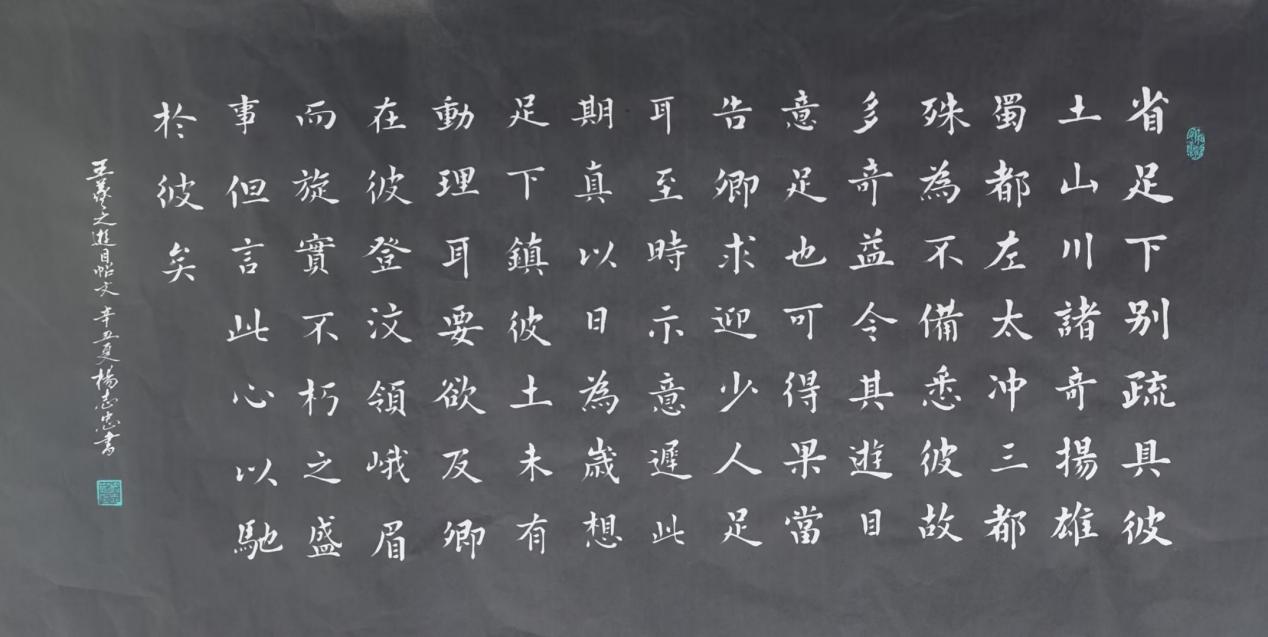 省足下别疏具彼
土山川諸奇揚雄
蜀都左太冲三都
殊為不備悉彼故
多奇益令其遊目
意足也可得果當
告卿求迎少人足
耳至時示意遲此
期真以日為歲想
足下鎮彼土未有
動理耳要欲及卿
在彼登汶領峨眉
而旋實不朽之盛
事但言此心以馳
於彼矣
王羲之遊目帖文 辛丑夏楊志忠書